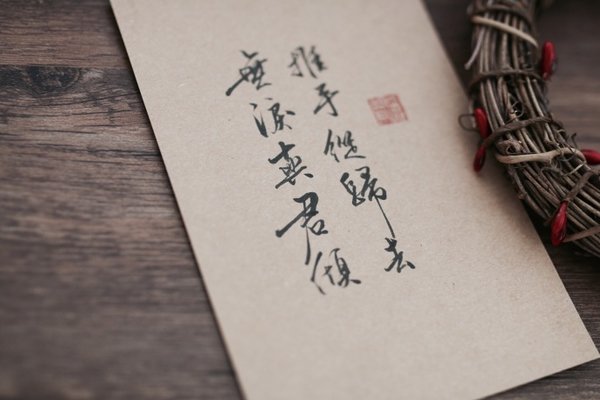 推手從歸去
無淚與君傾